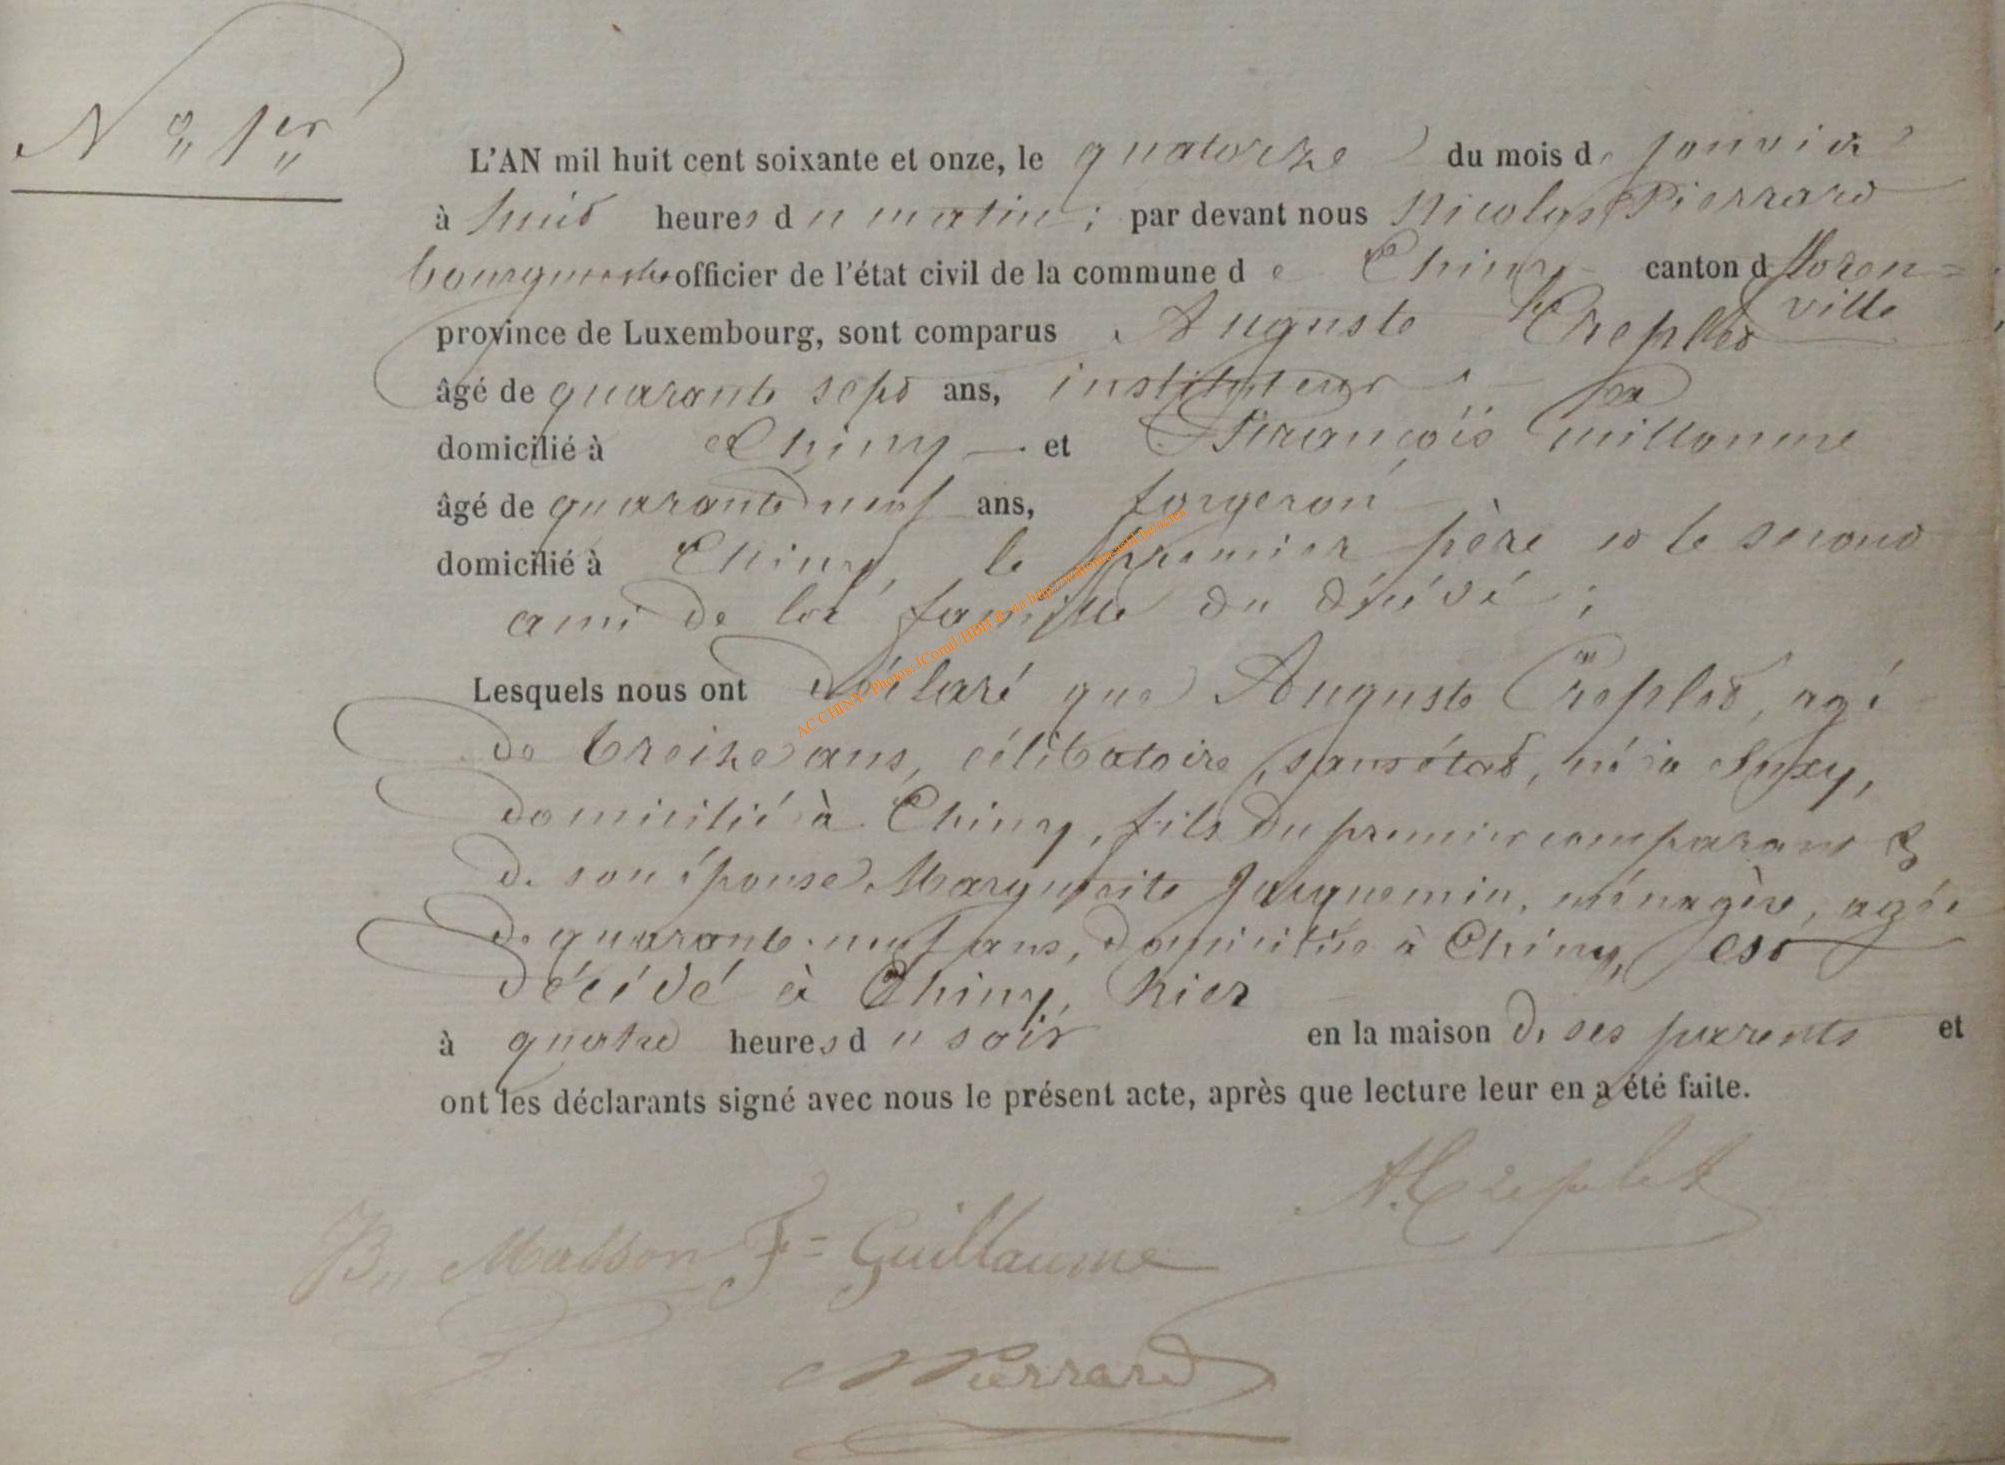 N° 1er
L'AN mil huit cent soixante et onze, le quatorze du mois de janvier
à huit heures du matin ; par devant nous Nicolas Pierrard
bourgmestre officier de l'état civil de la commune de Chiny canton d floren=
ville
province de Luxembourg, sont comparus Auguste Creplet
âgé de quarante sept ans, instituteur
domicilié à Chiny et François Guillaume
âgé de quarante neuf ans, forgeron
domicilié à Chiny, le premier père et le second
ami de la famille du décédé ;
Lesquels nous ont déclaré que Auguste Creplet, agé
de treize ans, célibataire, sans état, né à Suxy,
domicilié à Chiny, fils du premier comparant &
de son épouse Marguerite Jacquemin, ménagère, agée
de quarante-neuf ans, domiciliée à Chiny, est
décédé à Chiny, hier
à quatre heures du soir en la maison de ses parents et
ont les déclarants signé avec nous le présent acte, après que lecture leur en a été faite.
A. Creplet
Masson F= Guillaume
NPierrard